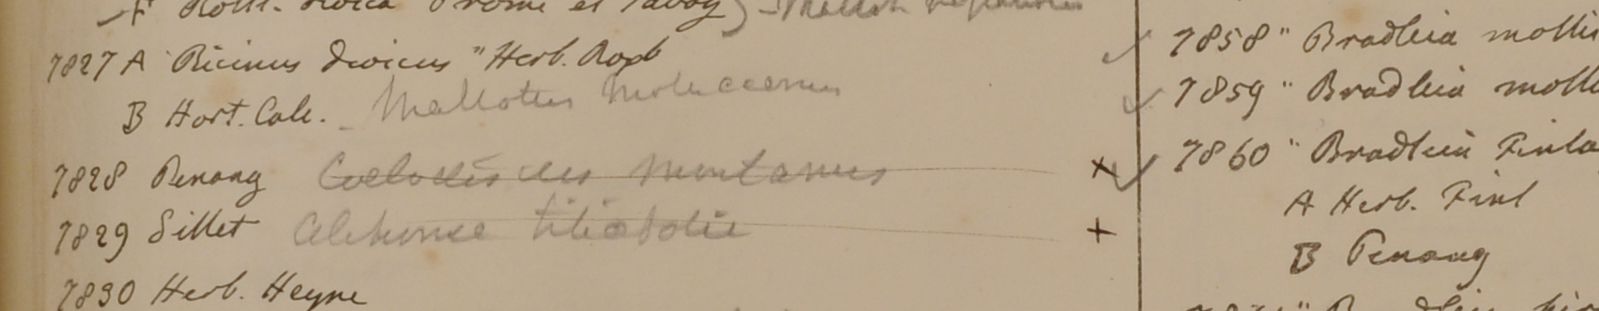 F Rottl. Prome et Tavoy
7827 A Ricinus dioicus " Herb. Roxb
B Hort. Calc. - Mallotus moluccanus
7828 Penang Coelodiscus montanus ×
7829 Sillet Alchornea tiliaefolia +
7830 Herb. Heyne
7858 " Bradleia mollis
7859 " Bradleia moll
7860 " Bradleia Finla
A Herb. Finl
B Penang